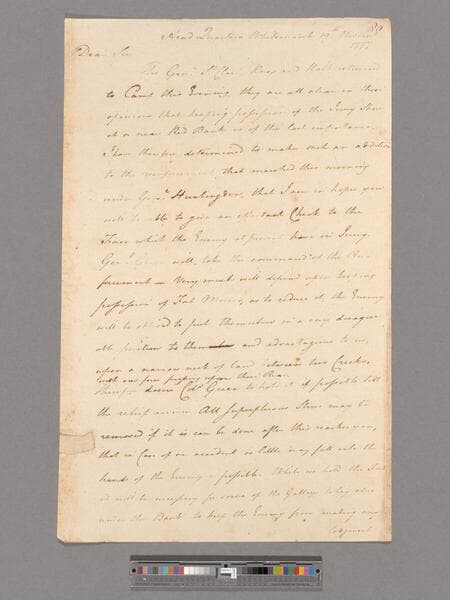 80
Head Quarters Whitemarsh 19th Novem
1777
Dear Sir
The Genls St Clair, Knox and Kalb returned
to Camp this Evening they are all clear in their
opinions that keeping possession of the Jersey Shore
at or near Red Bank is of the last importance.
I have therefore determined to make such an addition
to the reinforcement, that marched this morning
under Genl Huntingdon, that I am in hopes you
will be able to give an effectual Check to the
Force which the Enemy at present have in Jersey.
Genl will take the command of the Rein
forcement — Very much will depend upon keeping
possession of Fort Mercer, as to reduce it, the Enemy
will be obliged to put themselves in a very disagree
able position to them and advantageous to us,
upon a narrow neck of land between two Creeks,
with our force pressing upon their Rear.
Therefore desire Colo Green to hold it if possible till
the relief arrives. All superfluous Stores may be
removed if it can be done after this reaches you,
that in Case of an accident as little may fall into the
hands of the Enemy as possible. While we hold the Fort
it will be necessary for some of the Gallies to lay
under the Bank to keep the Enemy from making any
Lodgement